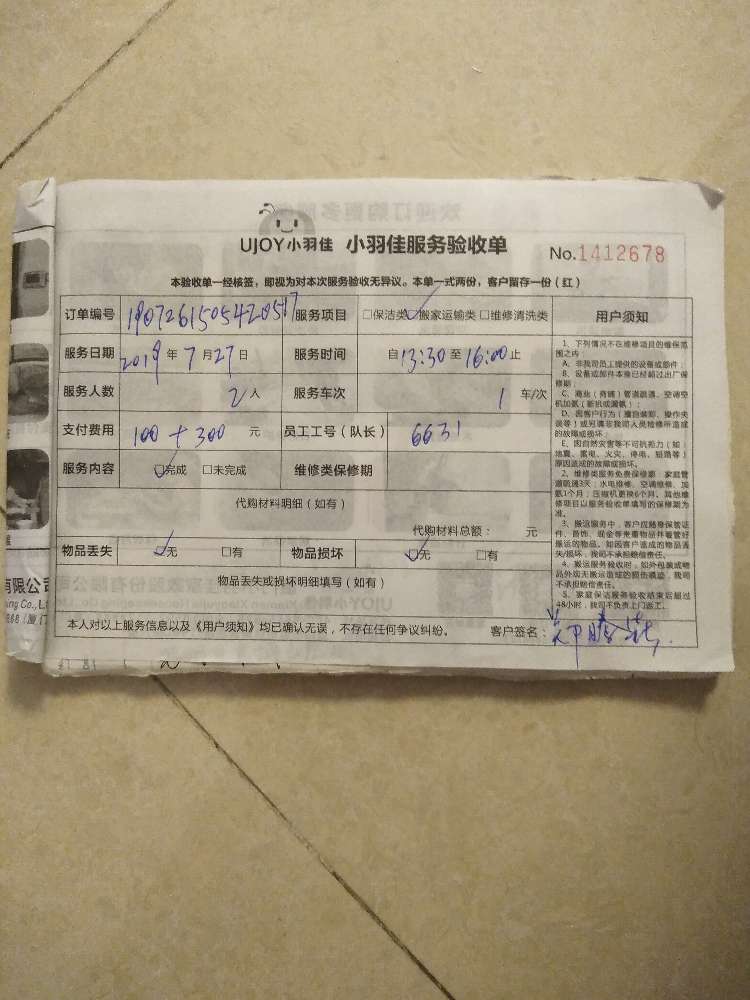 UJOY小羽佳 小羽佳服务验收单 No.1412678
本验收单一经核签，即视为对本次服务验收无异议。本单一式两份，客户留存一份（红）
订单编号 190726150542051 服务项目 □保洁类 ☑搬家运输类 □维修清洗类 用户须知
服务日期 2019年7月27日 服务时间 自13:30至16:00止
服务人数 2人 服务车次 1车/次
支付费用 100+300元 员工工号（队长） 6631
服务内容 ☑完成 □未完成 维修类保修期
代购材料明细（如有）
代购材料总额： 元
物品丢失 ☑无 □有 物品损坏 ☑无 □有
物品丢失或损坏明细填写（如有）
本人对以上服务信息以及《用户须知》均已确认无误，不存在任何争议纠纷。 客户签名：
1、下列情况不在维修项目的维保范
围之内：
A、非我司员工提供的设备或部件；
B、设备或部件本身已经超过出厂保
修期；
C、商业（商铺）管道疏通、空调空
机加氨（新机或漏氨）；
D、因客户行为（擅自装卸、操作失
误等）或另请非我司人员检修所造成
的故障或损坏；
E、因自然灾害等不可抗拒力（如：
地震、雷电、火灾、停电、短路等）
原因造成的故障或损坏。
2、维修类服务免费保修期：家庭管
道疏通3天；水电维修、空调维修、加
氨1个月；压缩机更换6个月。其他维
修项目以服务验收单填写的保修期为
准。
3、搬运服务中，客户应随身保管证
件、首饰、现金等贵重物品并看管好
搬运的物品。如因客户造成的物品丢
失/损坏，我司不承担赔偿责任。
4、搬运服务验收时，如外包装或物
品外观无搬运造成的损伤痕迹，我司
不承担赔偿责任。
5、家庭保洁服务验收结束后超过
48小时，我司不负责上门返工。
有限公司
ung Co.,L